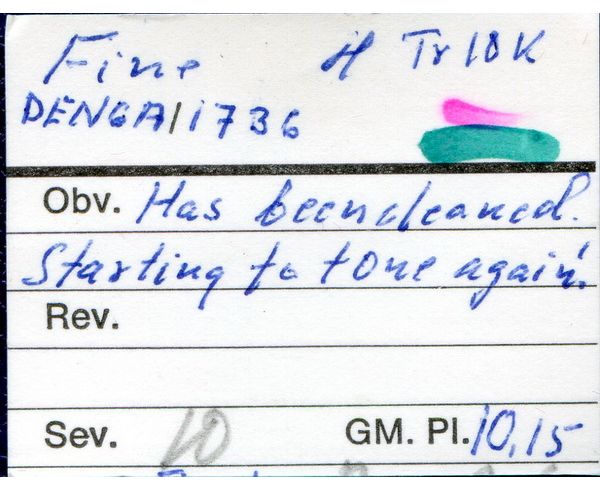 Fine H Tr 10K
DENGA/1736
Obv. Has been cleaned.
Starting to tone again.
Rev.
Sev. 10 GM. Pl. 10,15